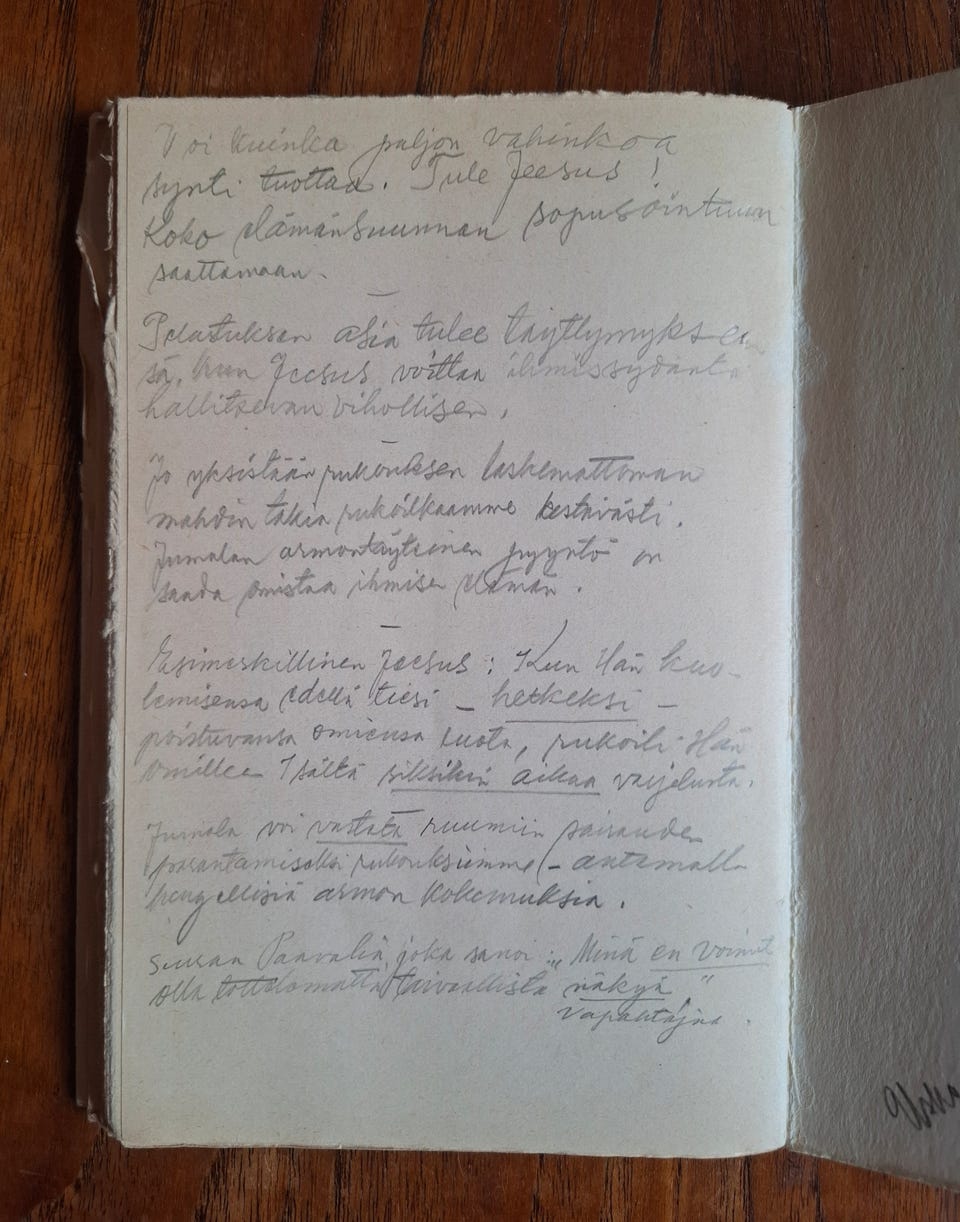 Voi kuinka paljon vahinkoa
synti tuottaa. Tule Jeesus!
Koko elämänsuunnan sopusointuun
saattamaan.
Pelastuksen asia tulee täyttymykses
sä, kun Jeesus voittaa ihmissydäntä
hallitsevan vihollisen.
Jo yksistään rukouksen laskemattoman
mahdin takia rukoilkaamme kestävästi.
Jumalan armontäyteinen pyyntö on
saada omistaa ihmisen elämän.
Esimerkillinen Jeesus: Kun Hän kuo-
lemisensa edellä tiesi - hetkeksi -
poistuvansa omiensa luota, rukoili Hän
omillee Isältä siksikin aikaa varjelusta.
Jumala voi vastata ruumiin sairauden
parantamiseksi rukouksiimme - antamalla
hengellisiä armon kokemuksia.
Seuraa Paavalia, joka sanoi: „Minä en voinut
olla tottelematta taivaallista näkyä"
Vapahtajaa.